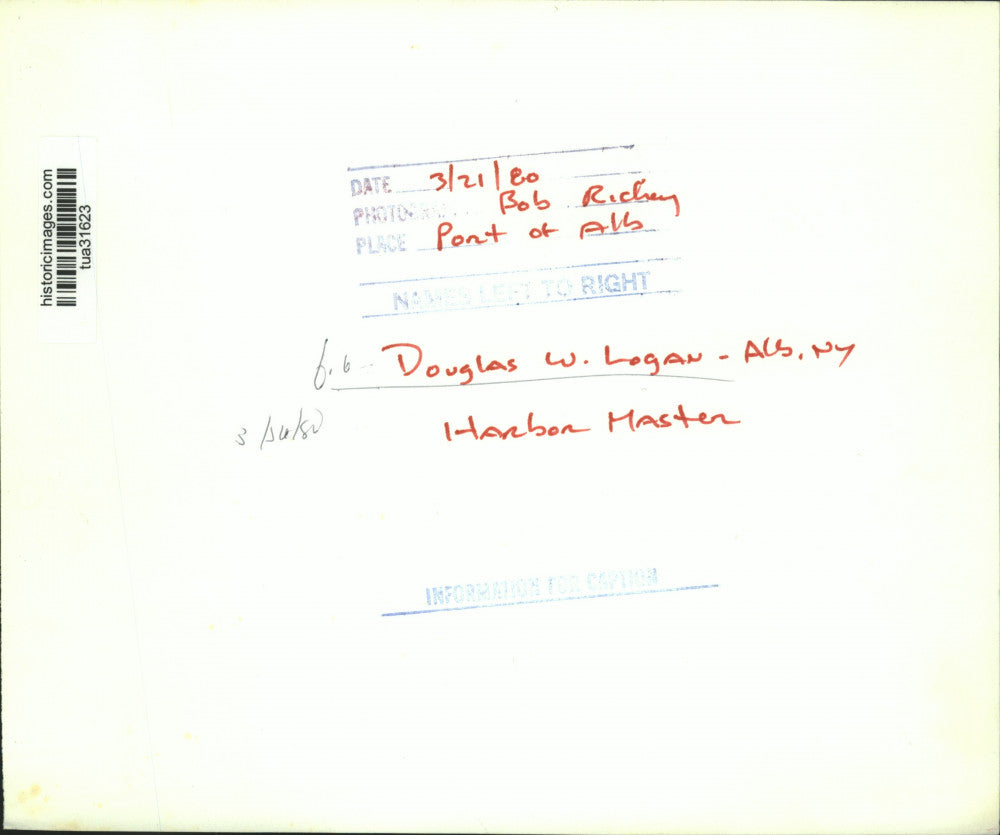 historicimages.com
tua31623
DATE 3/21/80
PHOTOGRA Bob Richey
PLACE Port of Alb
NAMES LEFT TO RIGHT
6 - Douglas W. Logan - Alb. NY
Harbor Master
INFORMATION FOR CAPTION